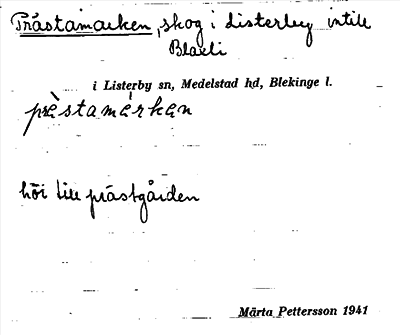 Prästamarken, skog i Listerby intill
Blaeli
i Listerby sn, Medelstad hd, Blekinge l.
prèstamárken
hör till prästgården
Märta Pettersson 1941